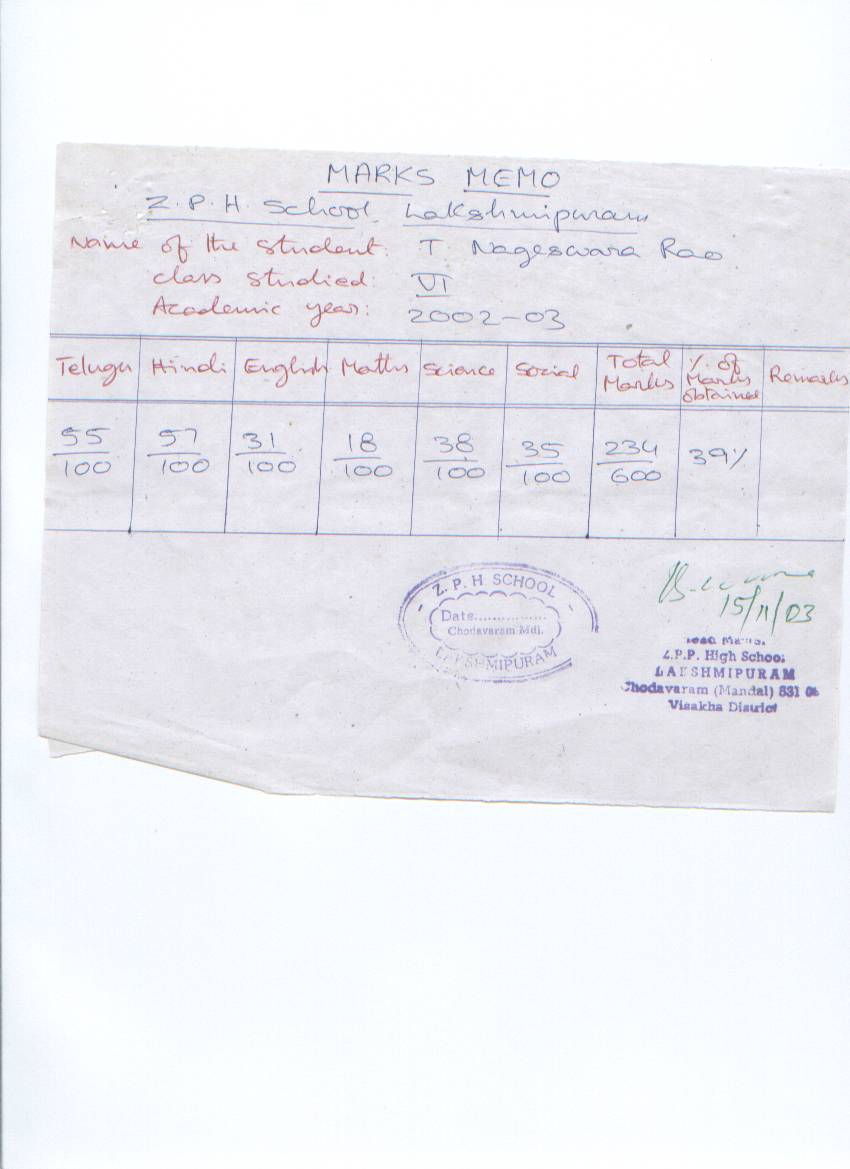 MARKS MEMO
Z.P.H. School Lakshmipuram
Name of the student: T. Nageswara Rao
class studied: VI
Academic year: 2002-03
Telugu Hindi English Maths Science Social Total Marks % of Marks obtained Remarks
55/100 57/100 31/100 18/100 38/100 35/100 234/600 39%
- Z. P. H SCHOOL -
Date...............
Chodavaram Mdl.
LAKSHMIPURAM
15/11/03
Z.P.P. High School
LAKSHMIPURAM
Chodavaram (Mandal) 531
Visakha District